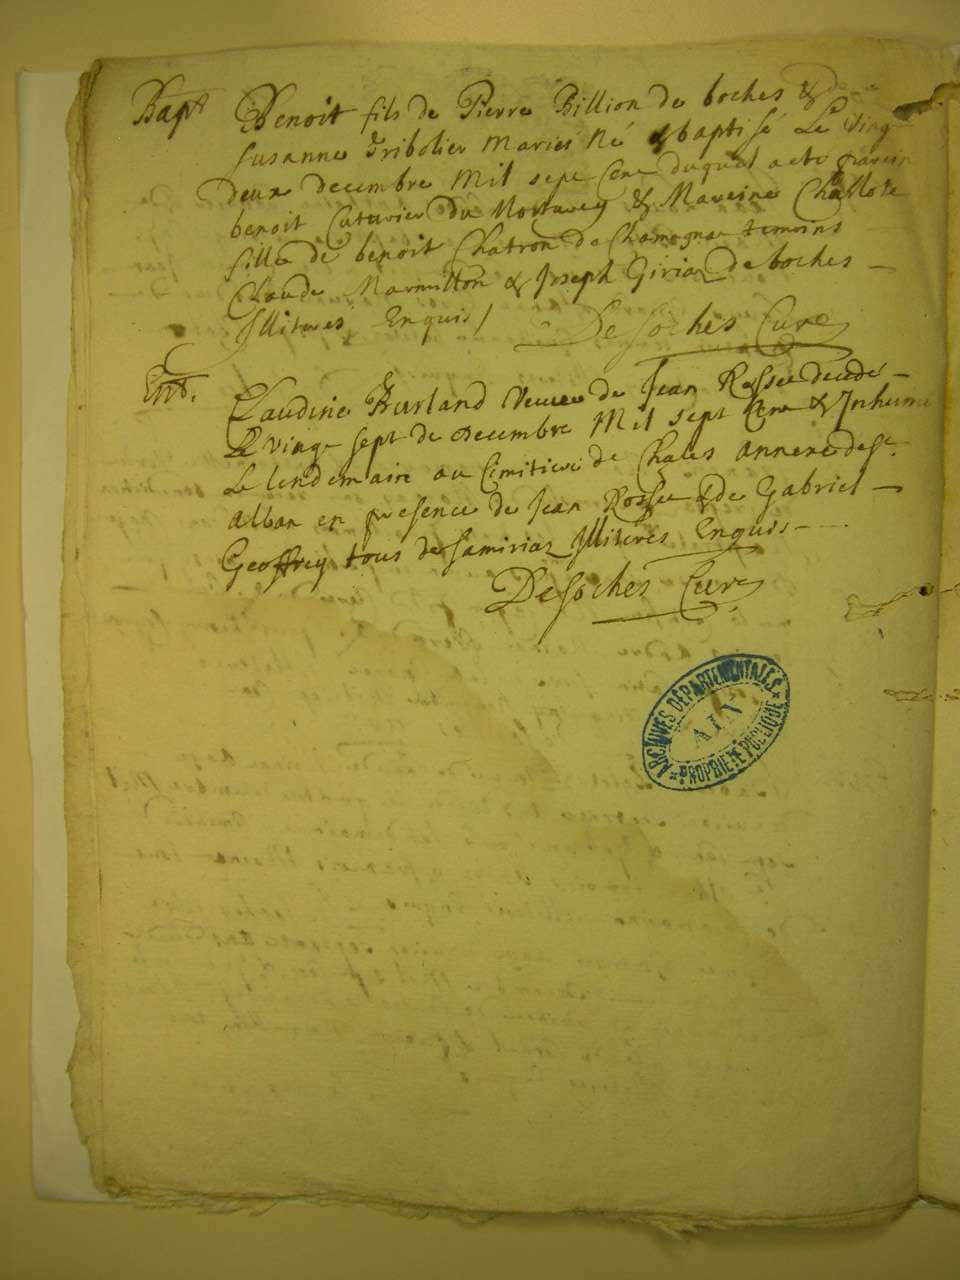 Bapt Benoit fils de Pierre Billion de boches & de
Susanne Tribolier Mariés Né & baptisé Le Ving
deux decembre Mil sept Cent duquel a eté parein
benoit Cuturier du Mortarey & Mareine Charlote
fille de benoit Chatron de Chamagnat temoins
Claude Marmillon & Joseph Giriat de boches
Illiteres Enquis /
Desoches Curé
Ent. Claudine Burland Veuve de Jean Rosset decede
Le Vingt sept de decembre Mil sept Cent & Inhume
Le lendemaire au Cimitiere de Chales annexe de St
Alban en presence de Jean Rosset & de Gabriel
Geoffrey tous de Samiriat Illiteres Enquis
Desoches Curé
ARCHIVES DÉPARTEMENTALES
AIN
PROPRIÉTÉ PUBLIQUE